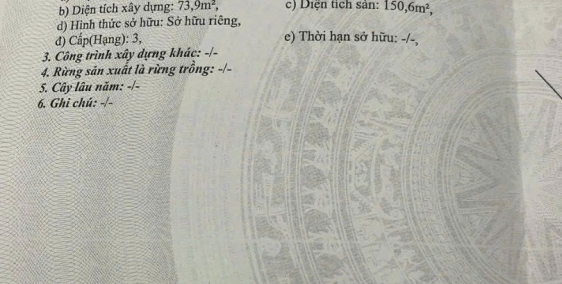 b) Diện tích xây dựng: 73,9m², c) Diện tích sàn: 150,6m²,
d) Hình thức sở hữu: Sở hữu riêng,
đ) Cấp(Hạng): 3, e) Thời hạn sở hữu: -/-,
3. Công trình xây dựng khác: -/-
4. Rừng sản xuất là rừng trồng: -/-
5. Cây lâu năm: -/-
6. Ghi chú: -/-